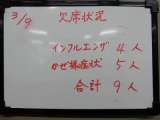 3/9 欠席状況
インフルエンザ 4人
かぜ様症状 5人
合計 9人